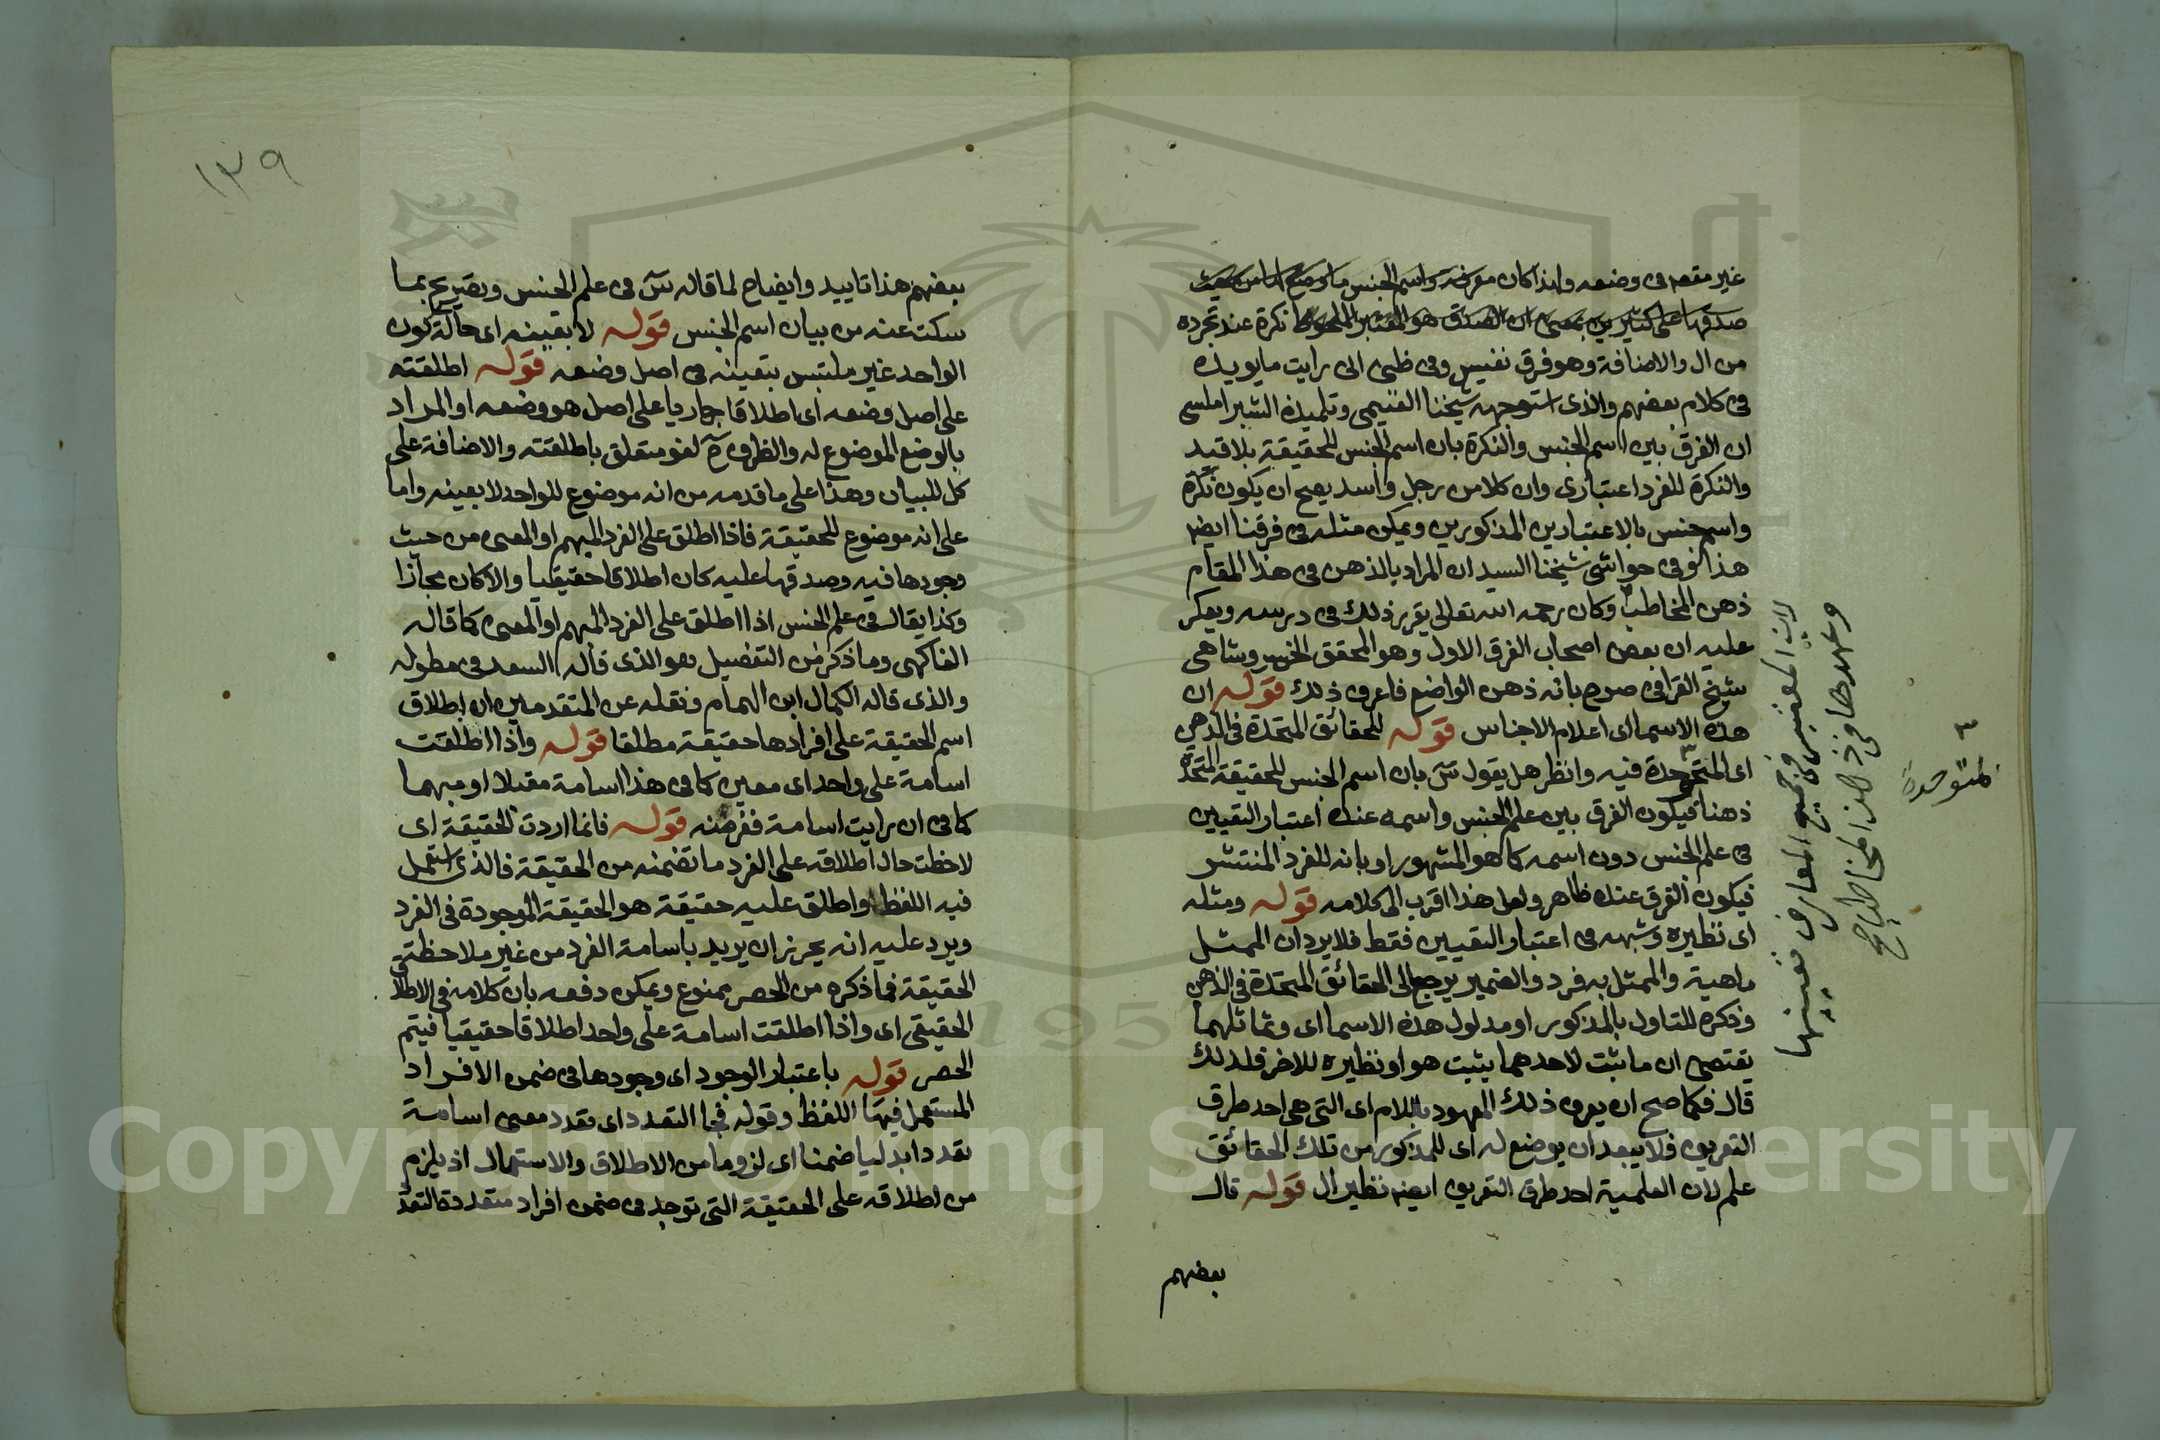 غير معتبر في وضعه ولذا كان معرفة واسم الجنس ما وضع لها من حيث
صدقها على كثيرين بمعنى ان الصدق هو المعتبر الملحوظ نكرة عند تجرده
من ال والاضافة وهو فرق نفيس وفي ظني اني رايت ما يويده
في كلام بعضهم والذي استوجهه شيخنا الغنيمي وتلميذه الشبراملسي
ان الفرق بين اسم الجنس والنكرة بان اسم الجنس للحقيقة بلا قيد
والنكرة للفرد اعتباري وان كلا من رجل واسد يصح ان يكون نكرة
واسم جنس بالاعتبارين المذكورين ويمكن مثله في فرقنا ايضا
هذا وفي حواشي شيخنا السيد ان المراد بالذهن في هذا المقام
ذهن المخاطب وكان رحمه الله تعالى يقرر ذلك في درسه ويعكر
عليه ان بعض اصحاب الفرق الاول وهو المحقق الخسروشاهي
شيخ القرافي صرح بانه ذهن الواضع فاعرف ذلك قوله ان
هذه الاسما اي اعلام الاجناس قوله للحقائق المتحدة في الذهن
اي المتوحدة فيه وانظر هل يقول س بان اسم الجنس للحقيقة المتحدة
ذهنا فيكون الفرق بين علم الجنس واسمه عنده اعتبار التعيين
في علم الجنس دون اسمه كما هو المشهور او بانه للفرد المنتشر
فيكون الفرق عنده ظاهر ولعل هذا اقرب الى كلامه قوله ومثله
اي نظيره وشبهه في اعتبار التعيين فقط فلا يرد ان الممثل
ماهية والممثل به فرد والضمير يرجع الى الحقائق المتحدة في الذهن
وذكره للتاول بالمذكور او مدلول هذه الاسما اي وتماثلهما
يقتضي ان ما ثبت لاحدهما يثبت هو او نظيره للاخر فلذلك
قال فكما صح ان يعرف ذلك المعهود باللام اي التي هي احد طرق
التعريف فلا يبعد ان يوضع له اي للمذكور من تلك الحقائق
علم لان العلمية احد طرق التعريف ايضا نظير ال قوله قال
بعضهم
لان المعتبر في جميع المعارف تعيينها
وعهدها في ذهن المخاطب صح
المتوحدة
١٣٩
بعضهم هذا تاييد وايضاح لما قاله س في علم الجنس وتصريح بما
سكت عنه من بيان اسم الجنس قوله لا بعينه اي حالة كون
الواحد غير ملتبس بتعينه في اصل وضعه قوله اطلقته
على اصل وضعه اي اطلاقا جاريا على اصل هو وضعه او المراد
بالوضع الموضوع له والظرف ح لغو متعلق باطلقته والاضافة على
كل للبيان وهذا على ما قدمه من انه موضوع للواحد لا بعينه واما
على انه موضوع للحقيقة فاذا اطلق على الفرد المبهم او المعين من حيث
وجودها فيه وصدقها عليه كان اطلاقا حقيقيا والا كان مجازا
وكذا يقال في علم الجنس اذا اطلق على الفرد المبهم او المعين كما قاله
الفاكهي وما ذكر من التفصيل هو الذي قاله السعد في مطوله
والذي قاله الكمال ابن الهمام ونقله عن المتقدمين ان اطلاق
اسم الحقيقة على افرادها حقيقة مطلقا قوله واذا اطلقت
اسامة على واحد اي معين كما في هذا اسامة مقبلا او مبهما
كما في ان رايت اسامة ففر منه قوله فانما اردت الحقيقة اي
لاحظت حال اطلاقه على الفرد ما تضمنه من الحقيقة فالذي استعمل
فيه اللفظ واطلق عليه حقيقة هو الحقيقة الموجودة في الفرد
ويرد عليه انه يجوز ان يريد باسامة الفرد من غير ملاحظة
الحقيقة فما ذكره من الحصر ممنوع ويمكن دفعه بان كلامه في الاطلاق
الحقيقي اي واذا اطلقت اسامة على واحد اطلاقا حقيقيا فيتم
الحصر قوله باعتبار الوجود اي وجودها في ضمن الافراد
المستعمل فيها اللفظ وقوله فجا التعدد اي تعدد معنى اسامة
تعددا بدليا ضمنا اي لزوما من الاطلاق والاستعمال اذ يلزم
من اطلاقه على الحقيقة التي توجد في ضمن افراد متعددة التعدد
Copyright © King Saud University
1957